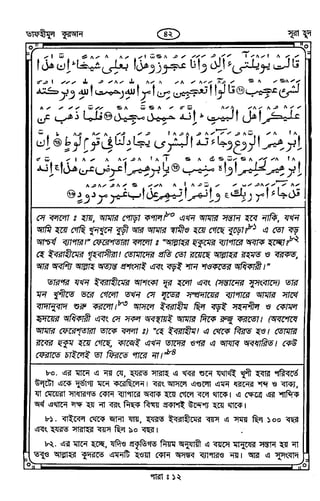 তাফহীমুল কুরআন
৪২
সূরা হূদ
قَالَتْ يٰوَيْلَتٰٓى ءَاَلِدُ وَاَنَا عَجُوْزٌ وَّهٰذَا بَعْلِيْ شَيْخًا ؕ اِنَّ هٰذَا
لَشَيْءٌ عَجِيْبٌ ۝ قَالُوْٓا اَتَعْجَبِيْنَ مِنْ اَمْرِ اللّٰهِ رَحْمَتُ اللّٰهِ وَبَرَكٰتُهٗ
عَلَيْكُمْ اَهْلَ الْبَيْتِ ؕ اِنَّهٗ حَمِيْدٌ مَّجِيْدٌ ۝ فَلَمَّا ذَهَبَ عَنْ
اِبْرٰهِيْمَ الرَّوْعُ وَجَآءَتْهُ الْبُشْرٰى يُجَادِلُنَا فِيْ قَوْمِ لُوْطٍ ۝ اِنَّ
اِبْرٰهِيْمَ لَحَلِيْمٌ اَوَّاهٌ مُّنِيْبٌ ۝ يٰٓاِبْرٰهِيْمُ اَعْرِضْ عَنْ هٰذَا ۚ اِنَّهٗ
قَدْ جَآءَ اَمْرُ رَبِّكَ ۚ وَاِنَّهُمْ اٰتِيْهِمْ عَذَابٌ غَيْرُ مَرْدُوْدٍ ۝
সে বললো : হায়, আমার পোড়া কপাল!৮০ এখন আমার সন্তান হবে নাকি, যখন
আমি হয়ে গেছি খুনখুনে বুড়ী আর আমার স্বামীও হয়ে গেছে বুড়ো?৮১ এ তো বড়
আশ্চর্য ব্যাপার!" ফেরেশতারা বললো : "আল্লাহর হুকুমের ব্যাপারে অবাক হচ্ছো?৮২
হে ইবরাহীমের গৃহবাসীরা! তোমাদের প্রতি তো রয়েছে আল্লাহর রহমত ও বরকত,
আর অবশ্যি আল্লাহ অত্যন্ত প্রশংসাই এবং বড়ই শান শওকতের অধিকারী।"
তারপর যখন ইবরাহীমের আশংকা দূর হলো এবং (সন্তানের সুসংবাদে) তার
মন খুশীতে ভরে গেলো তখন সে লূতের সম্প্রদায়ের ব্যাপারে আমার সাথে
বাদানুবাদ শুরু করলো।৮৩ আসলে ইবরাহীম ছিল বড়ই সহনশীল ও কোমল
হৃদয়ের অধিকারী এবং সে সকল অবস্থায়ই আমার দিকে রুজু করতো। (অবশেষে
আমার ফেরেশতারা তাকে বললা :) "হে ইবরাহীম! এ থেকে বিরত হও। তোমার
রবের হুকুম হয়ে গেছে, কাজেই এখন তাদের ওপর এ আযাব অবধারিত। কেউ
ফেরাতে চাইলেই তা ফিরতে পারে না।"৮৪
৮০. এর মানে এ নয় যে, হযরত সারাহ এ খবর শুনে যথার্থই খুশী হবার পরিবর্তে
উল্‌টো একে দুর্ভাগ্য মনে করেছিলেন। বরং আসলে এগুলো এমন ধরনের শব্দ ও বাক্য,
যা মেয়েরা সাধারণত কোন ব্যাপারে অবাক হয়ে গেলে বলে থাকে। এ ক্ষেত্রে এর শাব্দিক
অর্থ এখানে লক্ষ হয় না বরং নিছক বিস্ময় প্রকাশই উদ্দেশ্য হয়ে থাকে।
৮১. বাইবেল থেকে জানা যায়, হযরত ইবরাহীমের বয়স এ সময় ছিল ১০০ বছর
এবং হযরত সারাহর বয়স ছিল ৯০ বছর।
৮২. এর মানে হচ্ছে, যদিও প্রকৃতিগত নিয়ম অনুযায়ী এ বয়সে মানুষের সন্তান হয় না
তবুও আল্লাহর কুদরতে এমনটি হওয়া কোন অসম্ভব ব্যাপারও নয়। আর এ সুসংবাদ
পারা : ১২